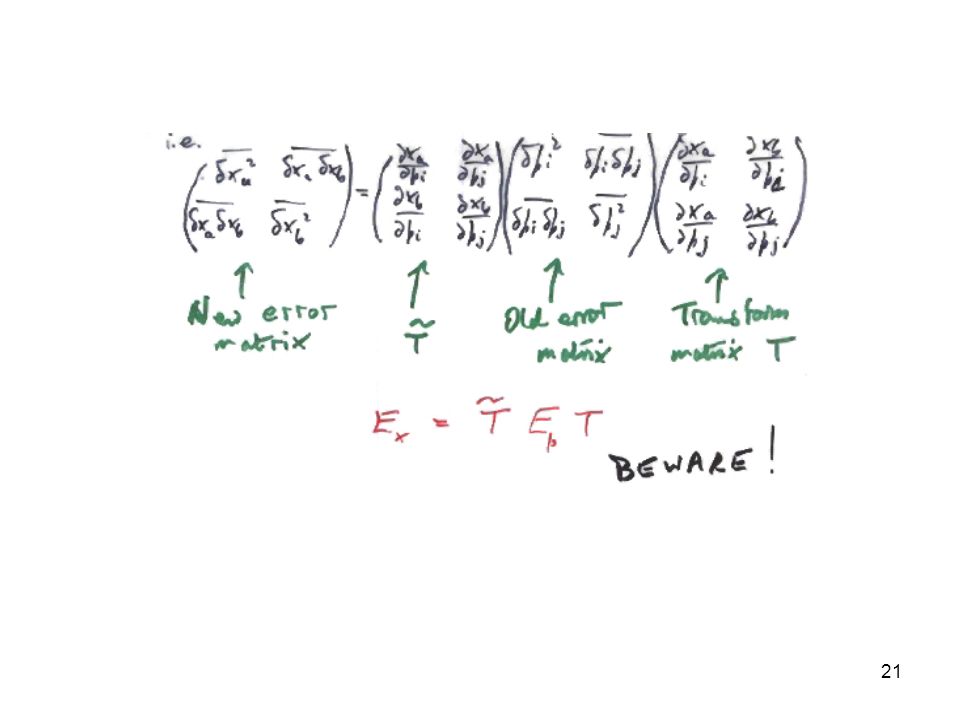 i.e.
( \overline{δx_a^2}  \overline{δx_a δx_b} ; \overline{δx_a δx_b}  \overline{δx_b^2} ) = ( ∂x_a/∂p_i  ∂x_a/∂p_j ; ∂x_b/∂p_i  ∂x_b/∂p_j ) ( \overline{δp_i^2}  \overline{δp_i δp_j} ; \overline{δp_i δp_j}  \overline{δp_j^2} ) ( ∂x_a/∂p_i  ∂x_b/∂p_i ; ∂x_a/∂p_j  ∂x_b/∂p_j )
↑ ↑ ↑ ↑
New error T̃ Old error Transform
matrix matrix matrix T
E_x = T̃ E_p T
BEWARE!
21